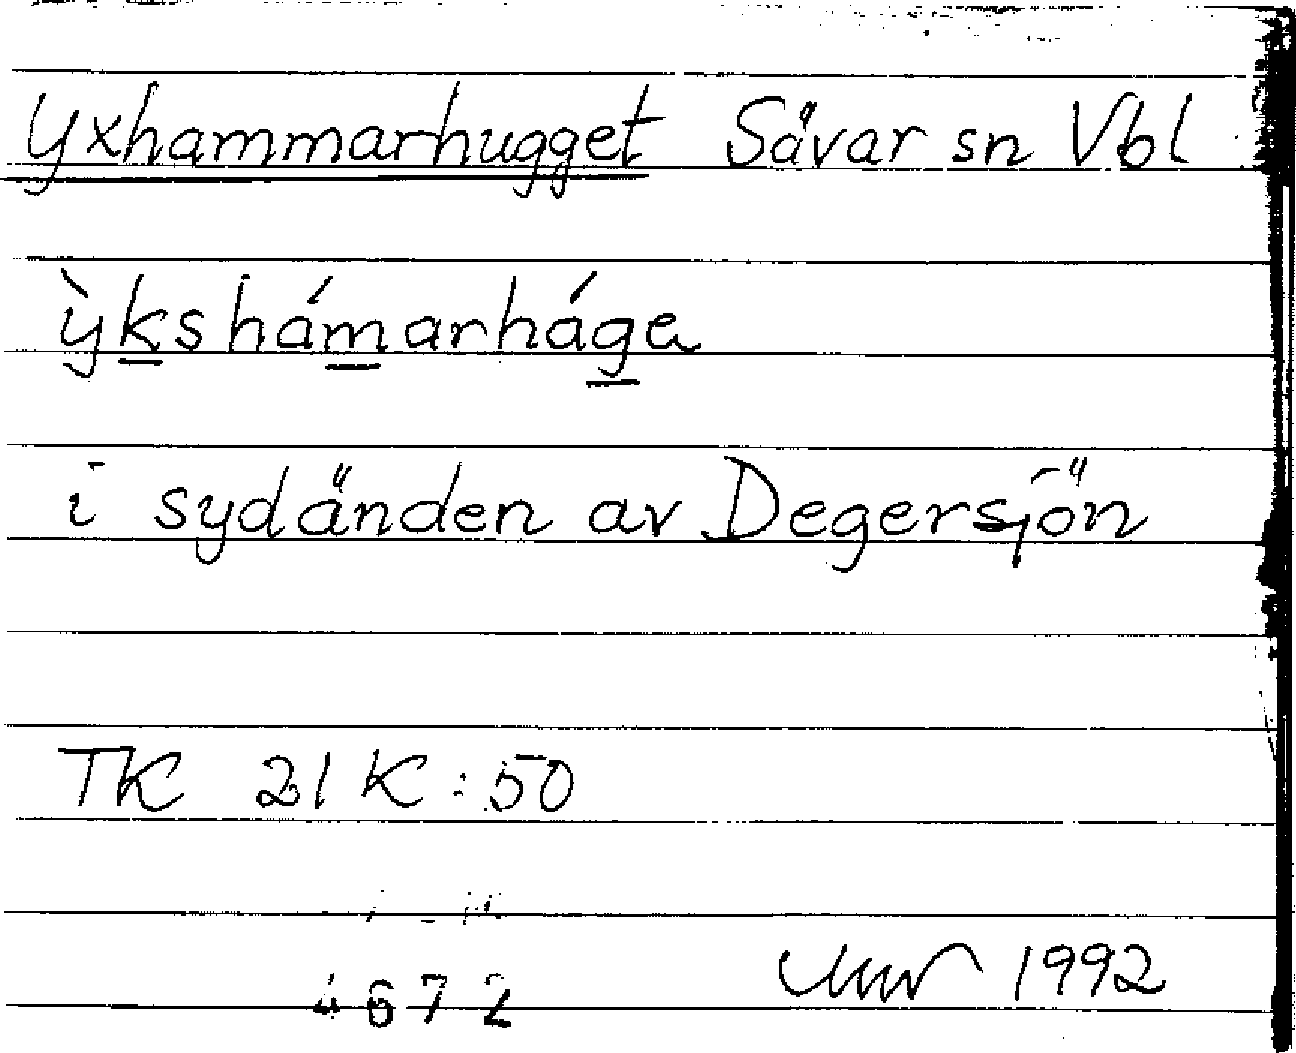 Yxhammarhugget Sävar sn Vbl
ỳkshámarháge
i sydänden av Degersjön
TK 21 K:50
1992
4672